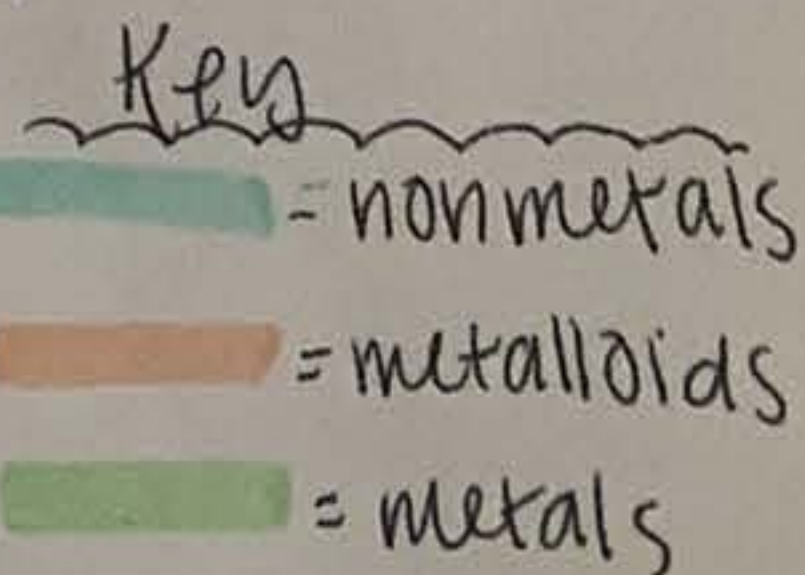 Key
= nonmetals
= metalloids
= metals